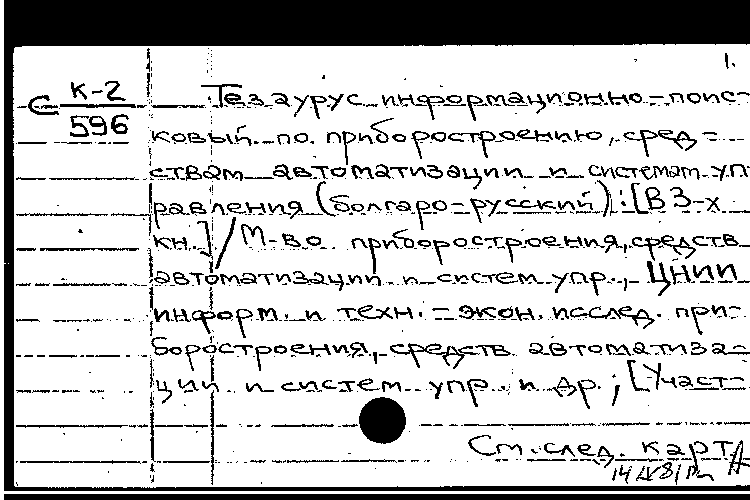 1.
С К-2
596
Тезаурус информационно-поис-
ковый по приборостроению, сред-
ствам автоматизации и системам уп
равления (болгаро-русский) : [В 3-х
кн.] / М-во приборостроения, средств
автоматизации и систем упр., ЦНИИ
информ. и техн.-экон. исслед. при-
боростроения, средств автоматиза-
ции и систем упр. и др. ; [Участ-
См. след. карт